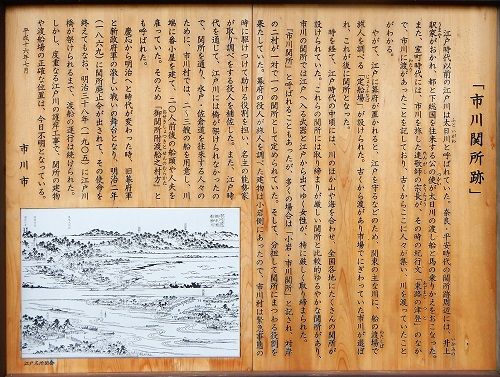 「市川関所跡」
江戸時代以前の江戸川は太日川と呼ばれていた。奈良・平安時代の関所跡周辺には、井上
駅家がおかれ、都と下総国を往来する公の使が太日川の渡し船と馬の乗りかえをおこなった。
また、室町時代には、市川を旅した連歌師の宗長が、その時の紀行文『東路の津登』のなか
で、市川に渡があったことを記しており、古くからここに人々が集い、川を渡っていたこと
がわかる。
やがて、江戸に幕府が置かれると、江戸を守るなどのため、関東の主な川に、船の渡場で
旅人を調べる「定船場」が設けられた。古くから渡があり市場でにぎわっていた市川が選ば
れ、これが後に関所となった。
時を経て、江戸時代の中頃には、川のほか山や海を合わせ、全国各地にたくさんの関所が
設けられていた。これらの関所には取り締まりが厳しい関所と比較的ゆるやかな関所があり、
市川の関所では江戸へ入る武器と江戸から出てゆく女性が、特に厳しく取り締まられた。
「市川関所」と呼ばれることもあったが、多くの場合は「小岩・市川関所」と記され、対岸
の二村が一対で一つの関所として定められていた。そして、分担して関所にまつわる役割を
果たしていた。幕府の役人が旅人を調べた建物は小岩側にあったので、市川村では緊急事態の
時に駆けつけて助ける役割を担い、名主の能勢家
が取り調べをする役人を補佐した。また、江戸時
代を通じて、江戸川には橋が架けられなかったの
で、関所を通り、水戸・佐倉道を往来する人々の
ために、市川村では、二〇人前後の船頭や人夫を
端に番小屋を建て、二、三艘の船を用意し、川
雇っていた。そのため「御関所附渡船之村方」と
も呼ばれた。
慶応から明治へと時代が変わった時、旧幕府軍
と新政府軍の激しい戦いの舞台となり、明治二年
(一八六九)に関所廃止令が出されて、その使命を
終えてもなお、明治三十八年(一九〇五)に江戸川
橋が架けられるまで、渡船の運行は続けられた。
しかし、度重なる江戸川の護岸工事で、関所の建物
や渡船場の正確な位置は、今日不明となっている。
平成十六年八月
市川市
江戸名所図会